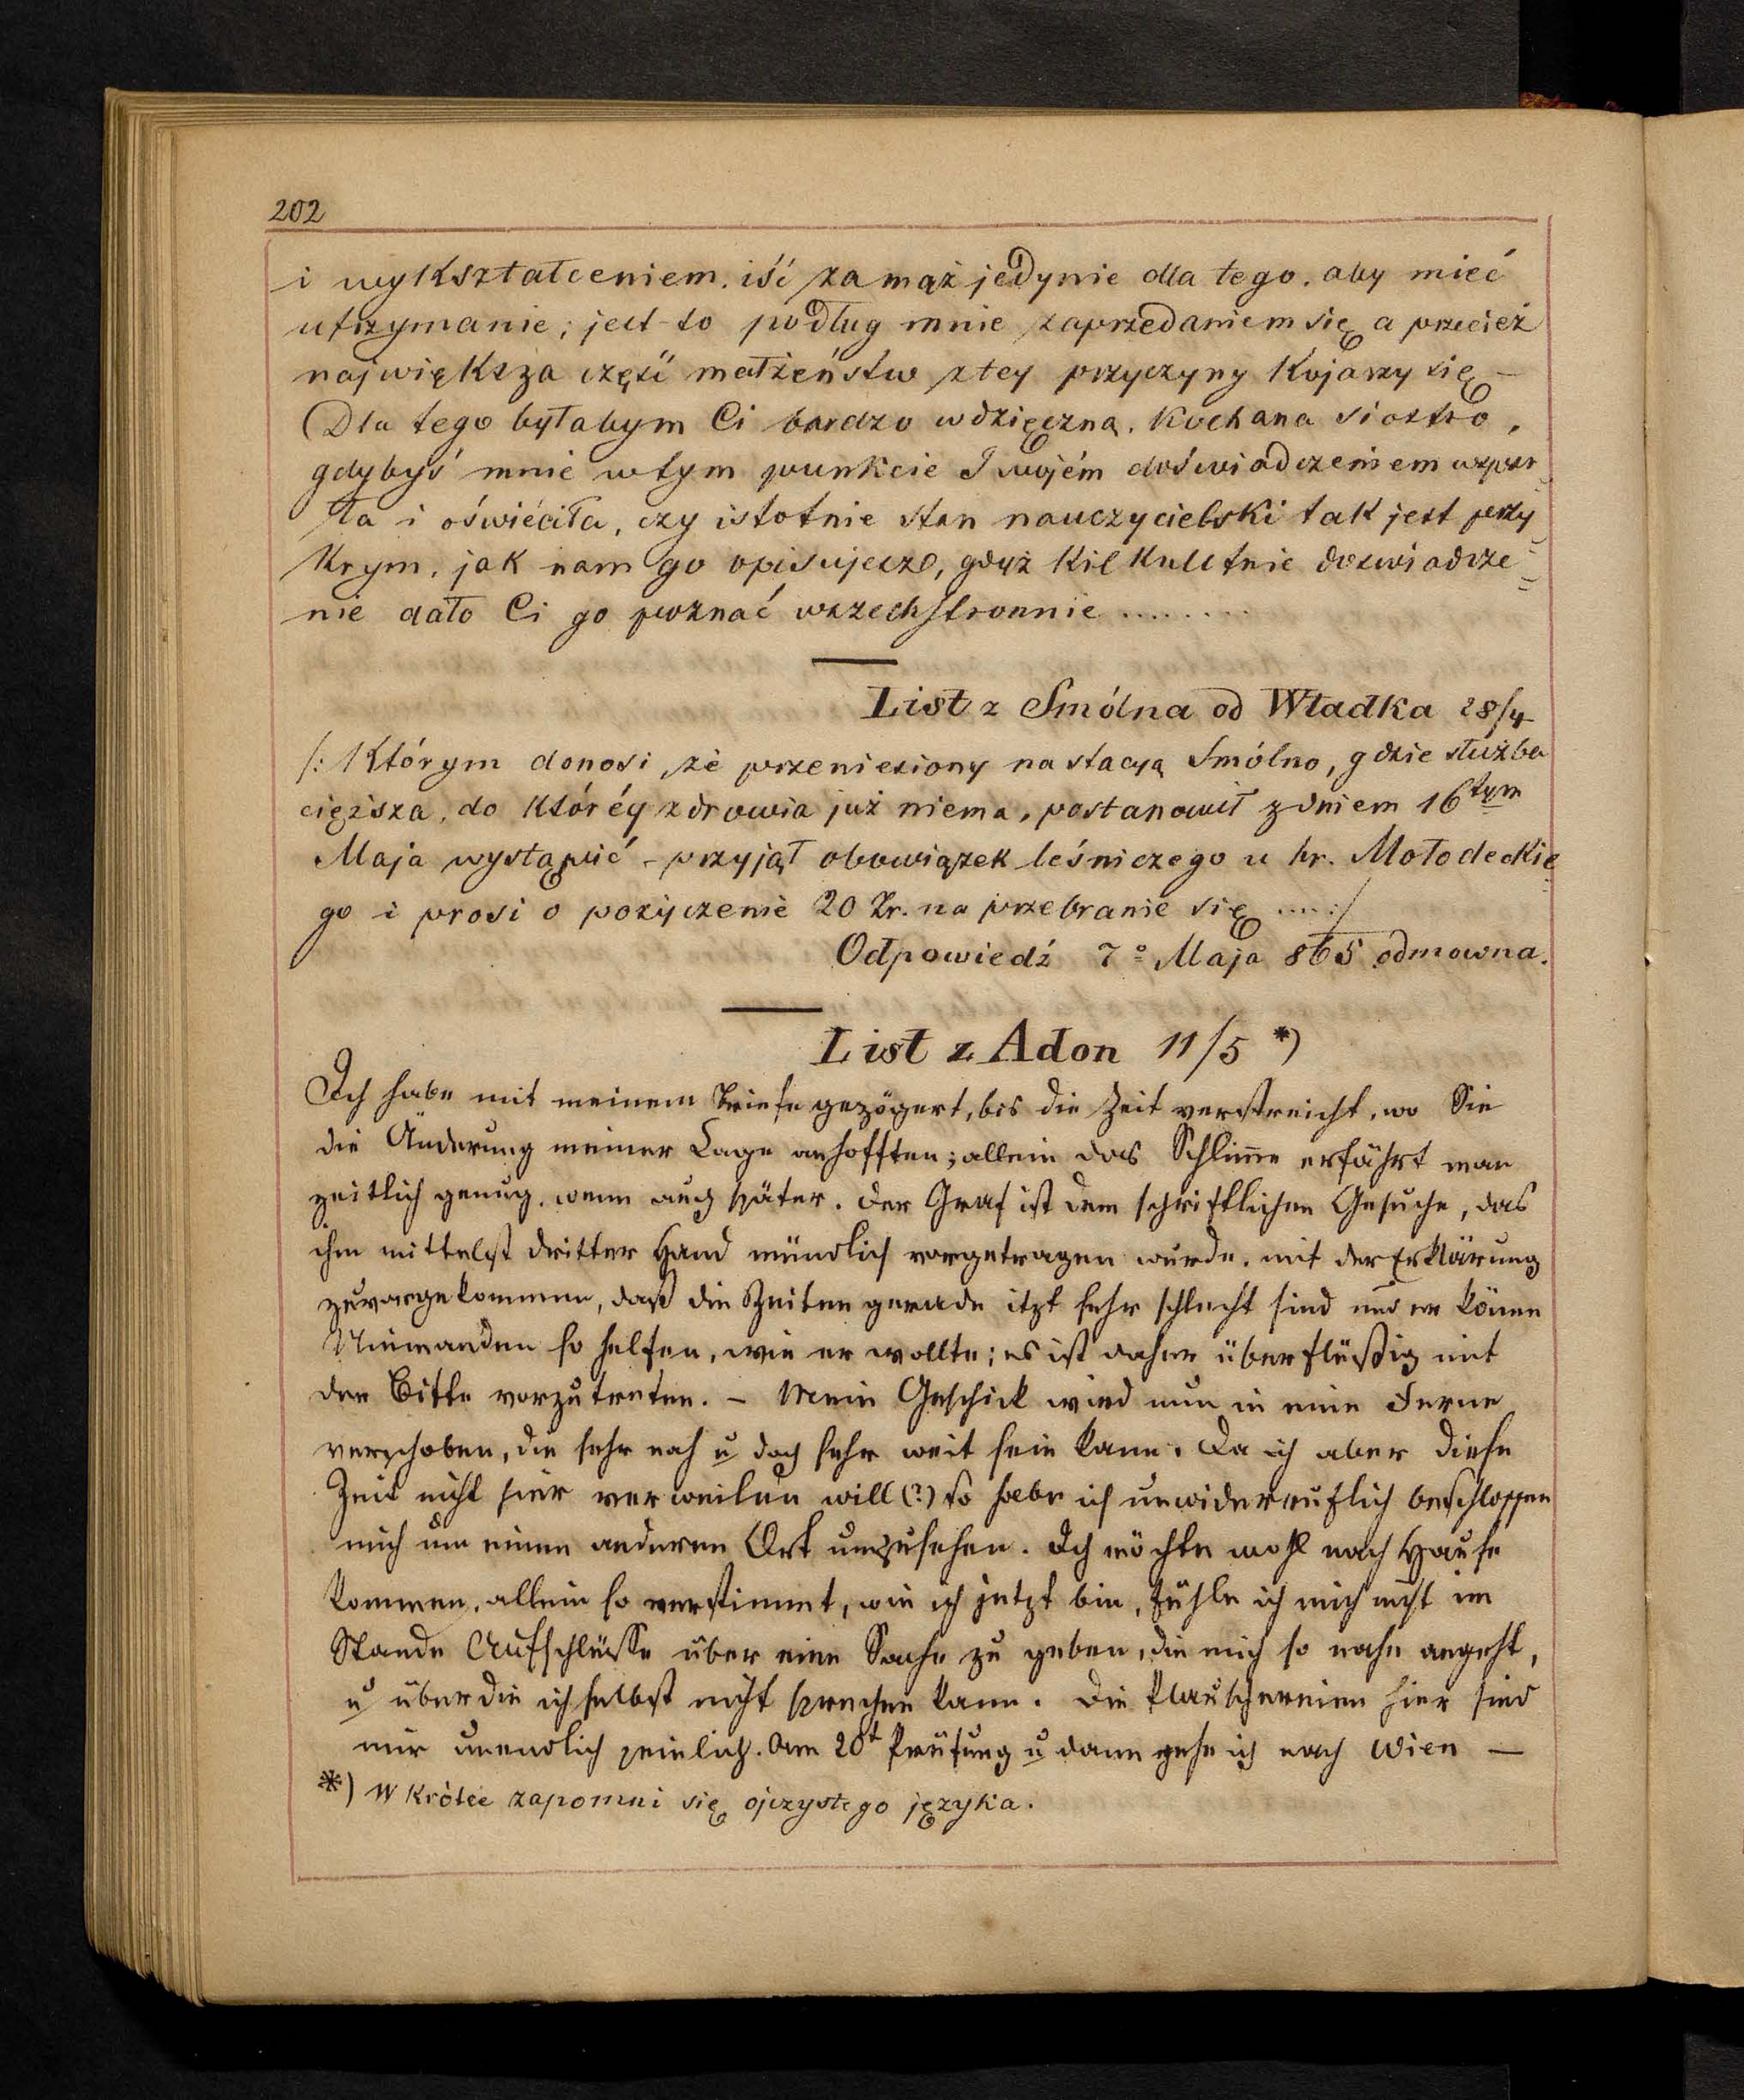 202
i wykształceniem. iść zamąż jedynie dla tego. aby mieć
utrzymanie; jest-to podług mnie zaprzedaniem się a przecież
największa część małżeństw z tey przyczyny kojarzy się –
Dla tego byłabym Ci bardzo wdzięczną. Kochana Siostro,
gdybyś mnie w tym punkcie Twojém doświadczeniem wspar=
ła i oświéciła, czy istotnie stan nauczycielski tak jest przy=
krym, jak nam go opisujesz, gdyż kilkuletnie doswiadcze=
nie dało Ci go poznać wszechstronnie ........
List z Smólna od Władka 28/4
/: Którym donosi, że przeniesiony na stacyą Smólno, gdzie służba
cięższa, do któréy zdrowia już niema, postanowił z dniem 16tym
Maja wystąpić – przyjął obowiązek leśniczego u hr. Mołodeckie=
go i prosi o pożyczenie 20 Zr. na przebranie się ....:/
Odpowiedź 7º Maja 865 odmowna.
List z Adon 11/5 *)
Ich habe mit meinem Briefe gezögert, bis die Zeit verstreicht, wo Sie
die Änderung meiner Lage anhofften; allein das Schlim̄e erfährt man
zeitlich genug, wenn auch später. Der Graf ist dem schriftlichen Gesuche, das
ihm mittelst dritter Hand mündlich vorgetragen wurde, mit der Erklärung
zuvorgekommen, daß die Zeiten gerade itzt sehr schlecht sind und er kön̄e
Niemanden so helfen, wie er wollte; es ist daher überflüßig mit
der Bitte vorzutreten. – Mein Geschick wird nun in eine Ferne
verschoben, die sehr nah u doch sehr weit sein kann. Da ich aber diese
Zeit nicht hier verweilen will (?) so habe ich unwiderruflich beschlossen
mich um einen anderen Ort umzusehen. Ich möchte wohl nach Hause
kommen, allein so verstimmt, wie ich jetzt bin, fühle ich mich nicht im
Stande Aufschlüsse über eine Sache zu geben, die mich so nahe angeht,
u über die ich selbst nicht sprechen kann. Die Plauschereien hier sind
mir unendlich peinlich. Am 20t Prüfung u dann gehe ich nach Wien –
*) W krótce zapomni się ojczystego języka.